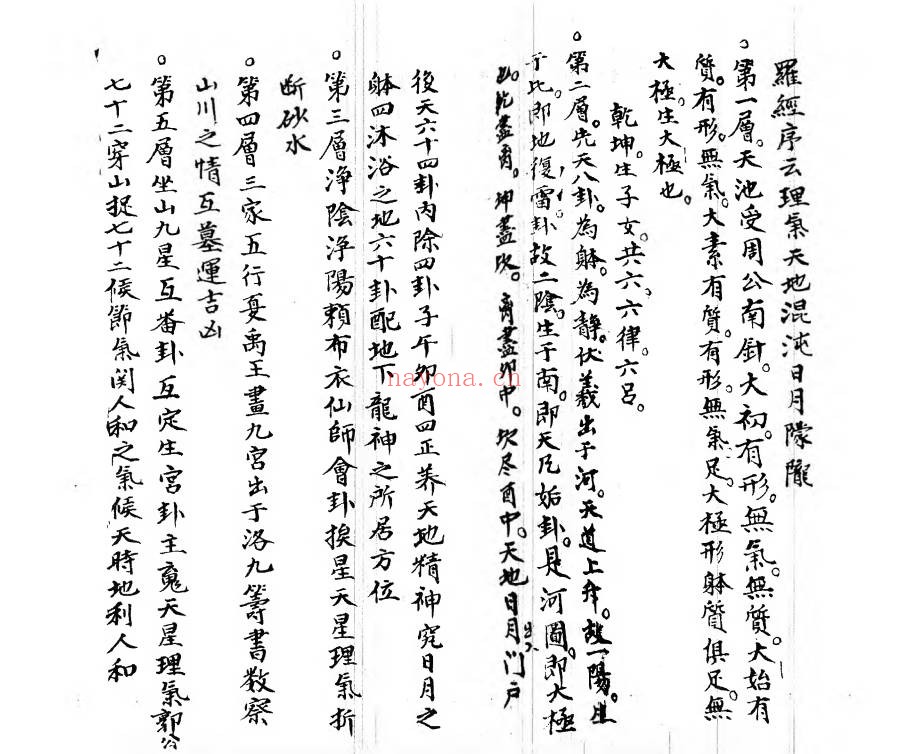 羅經序云理氣天地混沌日月朦朧
○第一層。天池受周公南針。大初。有形。無氣。無質。大始有
質。有形。無氣。大素有質。有形。無氣。足。大極形躰質俱足。無
大極。生大極也。
乾坤。生子女。共六。六律。六呂。
○第二層。先天八卦。為躰。為靜。伏羲出于河。天道上升。故一陽。生
于北。即地復雷卦。故二陰。生于南。即天凡姤卦。是河圖。即大極
乾盡离。坤盡坎。离盡卯中。坎尽酉中。天地日月門户
後天六十四卦內除四卦子午卯酉四正养天地精神究日月之
躰四沐浴之地六十卦配地下龍神之所居方位
○第三層淨陰淨陽賴布衣仙師會卦挨星天星理氣折
断砂水
○第四層三家五行夏禹王畫九宮出于洛九籌書数察
山川之情互墓運吉凶
○第五層坐山九星互畨卦互定生宮卦主寬天星理氣郭公
七十二穿山捉七十二候節氣関人和之氣候天時地利人和
nayona.cn